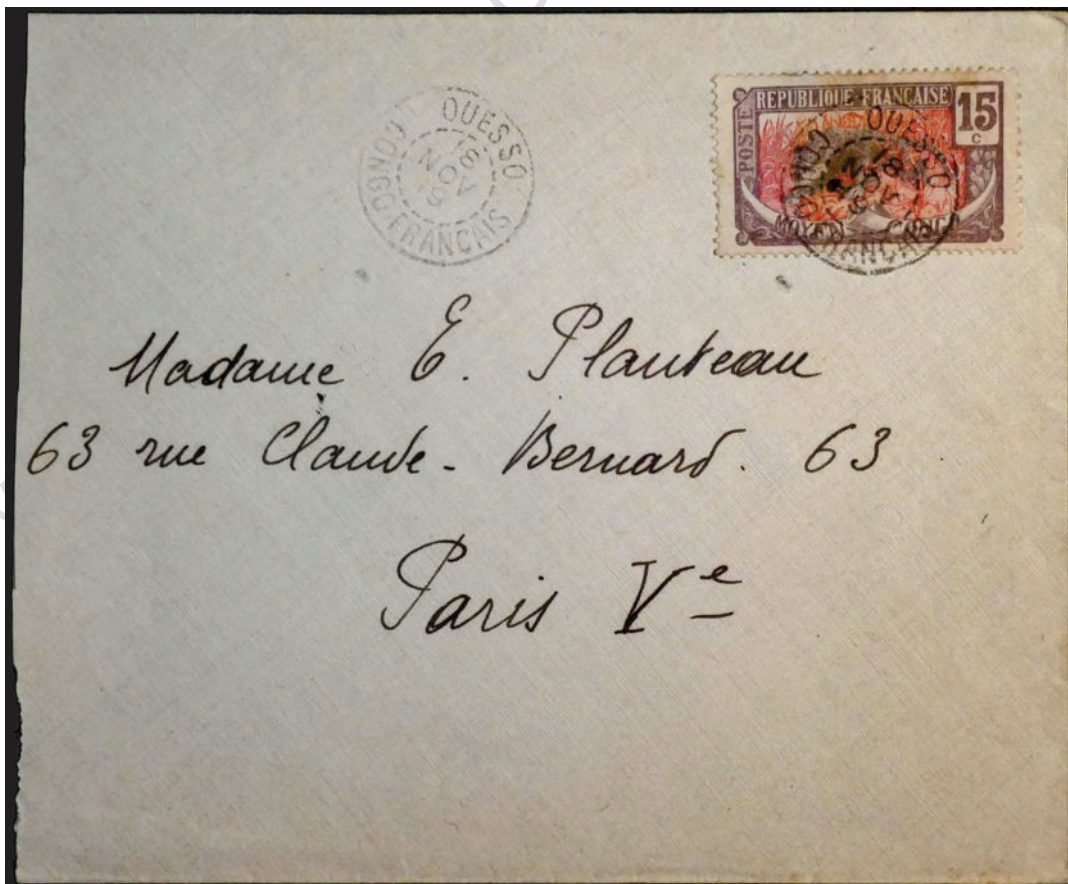 OUESSO
18
NOV
CONGO-FRANCAIS
REPUBLIQUE FRANÇAISE
15
c
POSTE
MOYEN CONGO
OUESSO
18
CONGO FRANCAIS
Madame E. Planteau
63 rue Claude-Bernard. 63
Paris Ve